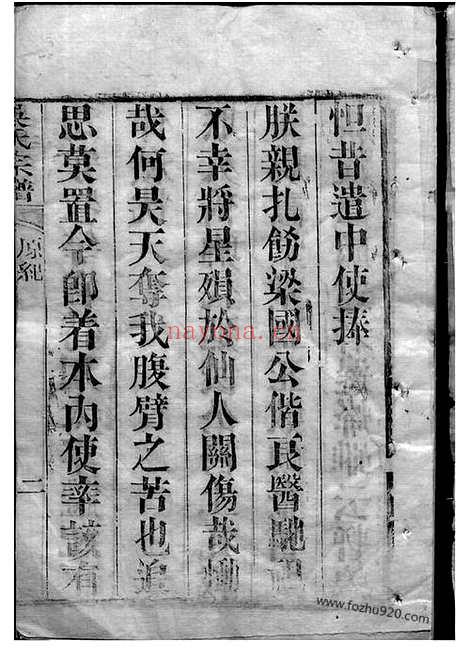 怛昔遣中使捧
朕親扎飭梁國公偕良醫馳
不幸將星殞於仙人關傷哉
哉何昊天奪我腹臂之苦也追
思莫置今卽着本內使率該有
吳氏宗譜
原紀
二
nayona.cn
www.fozhu920.com